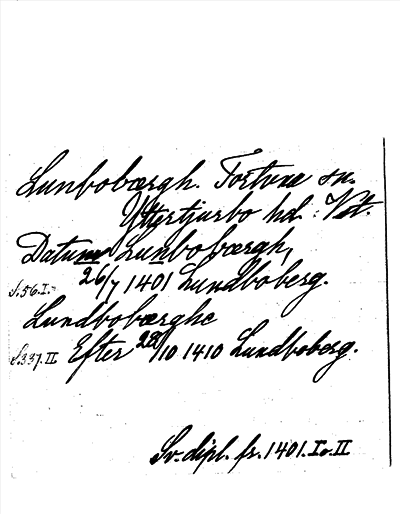 Lunbobærgh. Tortuna sn.
Yttertjurbo hd. Vst.
Datum Lunbobærgh,
S. 56. I. 26/7 1401 Lundboberg.
Lundbobærghe
S. 337. II Efter 28/10 1410 Lundboberg.
Sv. dipl. fr. 1401. I o. II